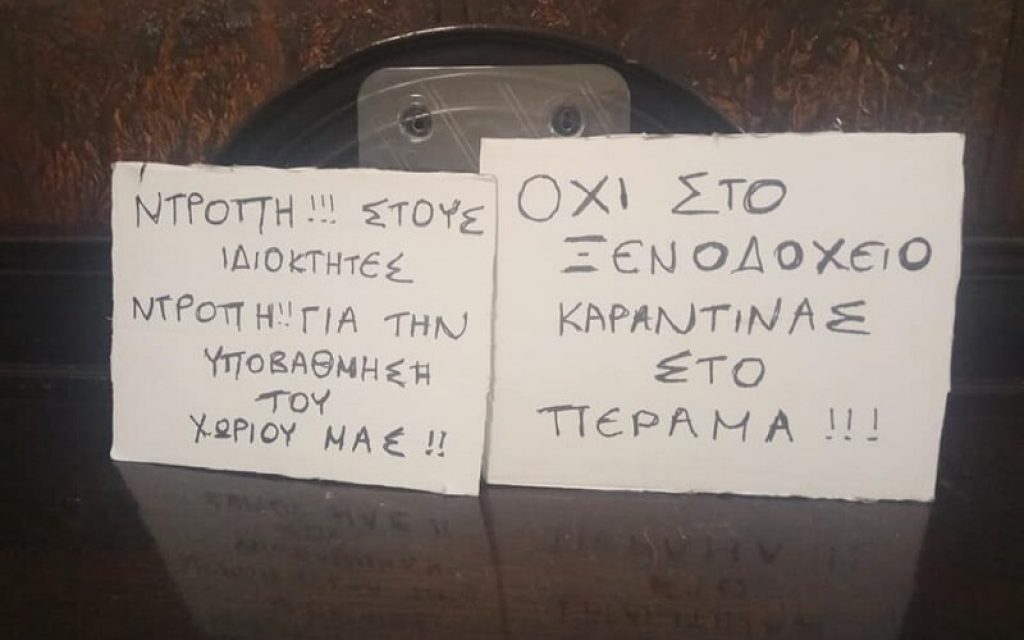 ΝΤΡΟΠΗ!!! ΣΤΟΥΣ
ΙΔΙΟΚΤΗΤΕΣ
ΝΤΡΟΠΗ!! ΓΙΑ ΤΗΝ
ΥΠΟΒΑΘΜΗΣΗ
ΤΟΥ
ΧΩΡΙΟΥ ΜΑΣ!!
ΟΧΙ ΣΤΟ
ΞΕΝΟΔΟΧΕΙΟ
ΚΑΡΑΝΤΙΝΑΣ
ΣΤΟ
ΠΕΡΑΜΑ!!!